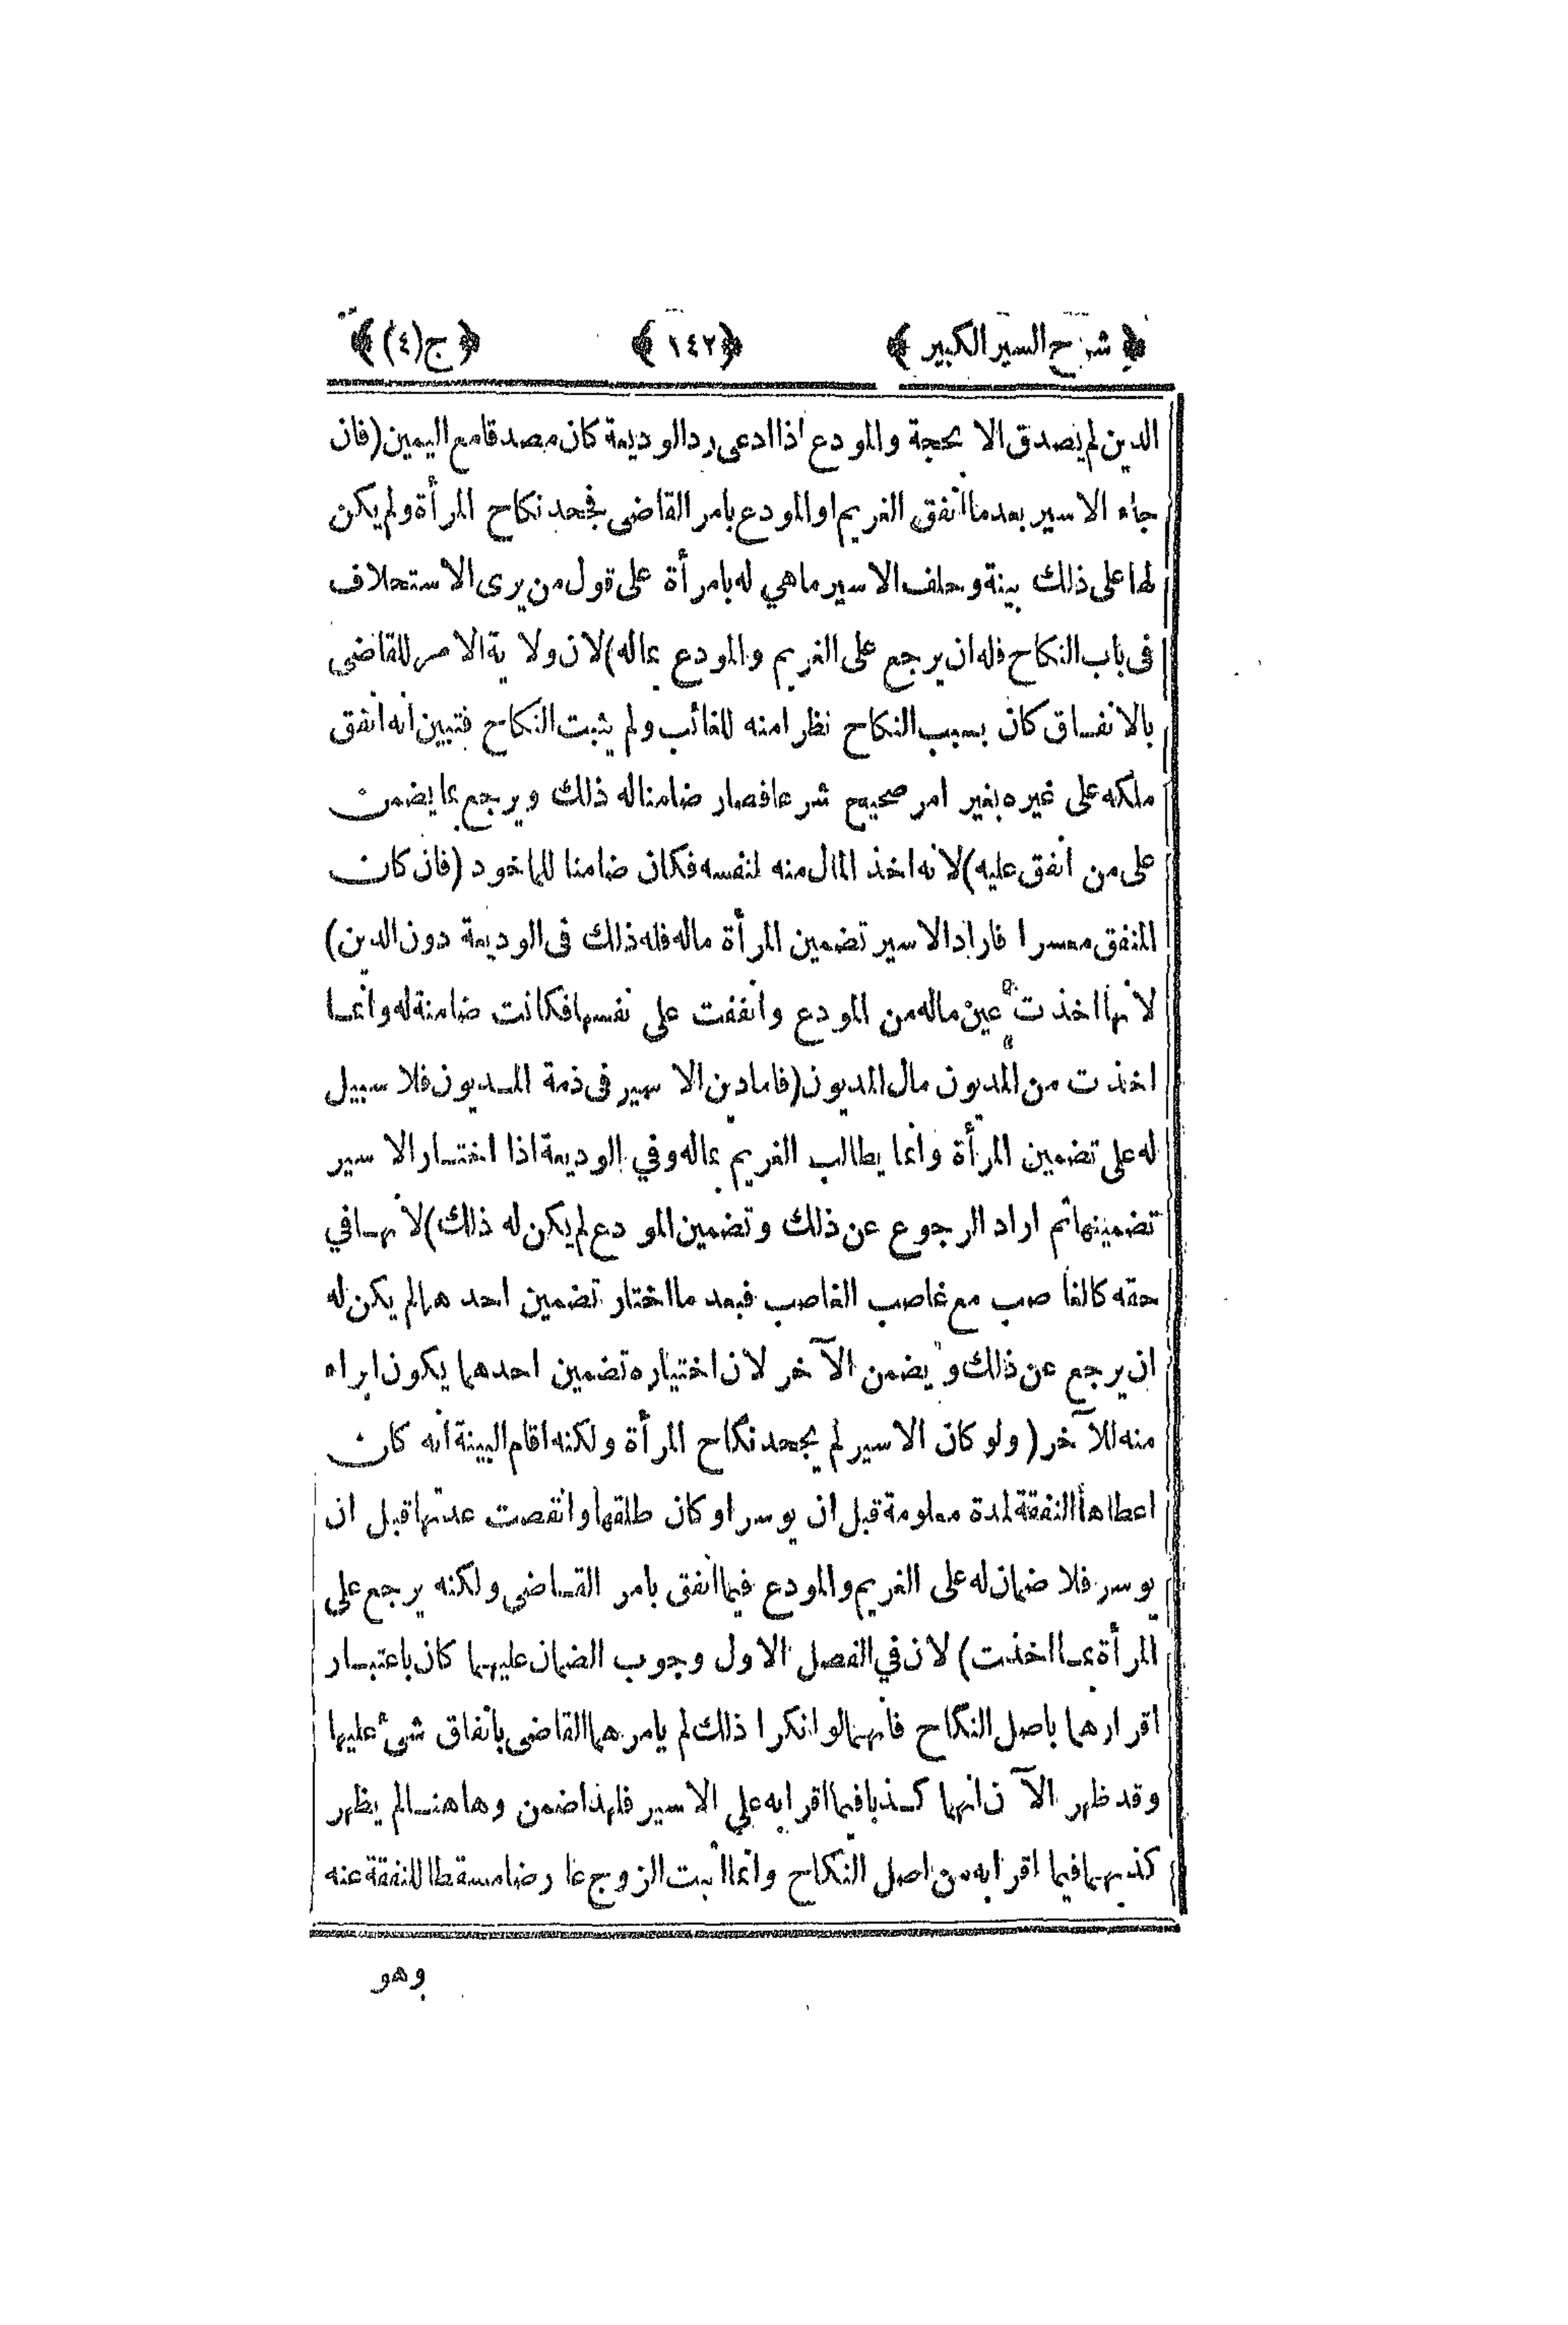 ﴿ شرح السير الكبير ﴾ ﴿ ١٤٢ ﴾ ﴿ ج (٤) ﴾
الدين لم يصدق الا بحجة والمودع اذا ادعى رد الوديعة كان مصدقا مع اليمين (فان
جاء الاسير بعد ما انفق الغريم او المودع بامر القاضى فجحد نكاح المرأة ولم يكن
لها على ذلك بينة وحلف الاسير ما هي له بامرأة على قول من يرى الاستحلاف
فى باب النكاح فله ان يرجع على الغريم والمودع بماله) لان ولاية الامر للقاضى
بالانفاق كان بسبب النكاح نظرا منه للغائب ولم يثبت النكاح فتبين انه انفق
ملكه على غيره بغير امر صحيح شرعا فصار ضامنا له ذلك ويرجع بما يضمن
على من انفق عليه) لانه اخذ المال منه لنفسه فكان ضامنا للماخود (فان كان
المنفق معسرا فاراد الاسير تضمين المرأة ماله فله ذلك فى الوديعة دون الدين)
لانها اخذت عين ماله من المودع وانفقت على نفسها فكانت ضامنة له وانما
اخذت من المديون مال المديون (فاما دين الاسير فى ذمة المديون فلا سبيل
له على تضمين المرأة وانما يطالب الغريم بماله وفي الوديعة اذا اختار الاسير
تضمينها ثم اراد الرجوع عن ذلك وتضمين المودع لم يكن له ذلك) لانها في
حقه كالغاصب مع غاصب الغاصب فبعد ما اختار تضمين احدهما لم يكن له
ان يرجع عن ذلك ويضمن الآخر لان اختياره تضمين احدهما يكون ابراء
منه للآخر (ولو كان الاسير لم يجحد نكاح المرأة ولكنه اقام البينة انه كان
اعطاها النفقة لمدة معلومة قبل ان يوسر او كان طلقها وانقصت عدتها قبل ان
يوسر فلا ضمان له على الغريم والمودع فيما انفق بامر القاضى ولكنه يرجع على
المرأة بما اخذت) لان في الفصل الاول وجوب الضمان عليهما كان باعتبار
اقرارهما باصل النكاح فانهما لو انكرا ذلك لم يامرهما القاضى بانفاق شئ عليها
وقد ظهر الآن انهما كذبا فيما اقرا به على الاسير فلهذا ضمن وهاهنا لم يظهر
كذبهما فيما اقرا به من اصل النكاح وانما اثبت الزوج عارضا مسقطا للنفقة عنه
وهو